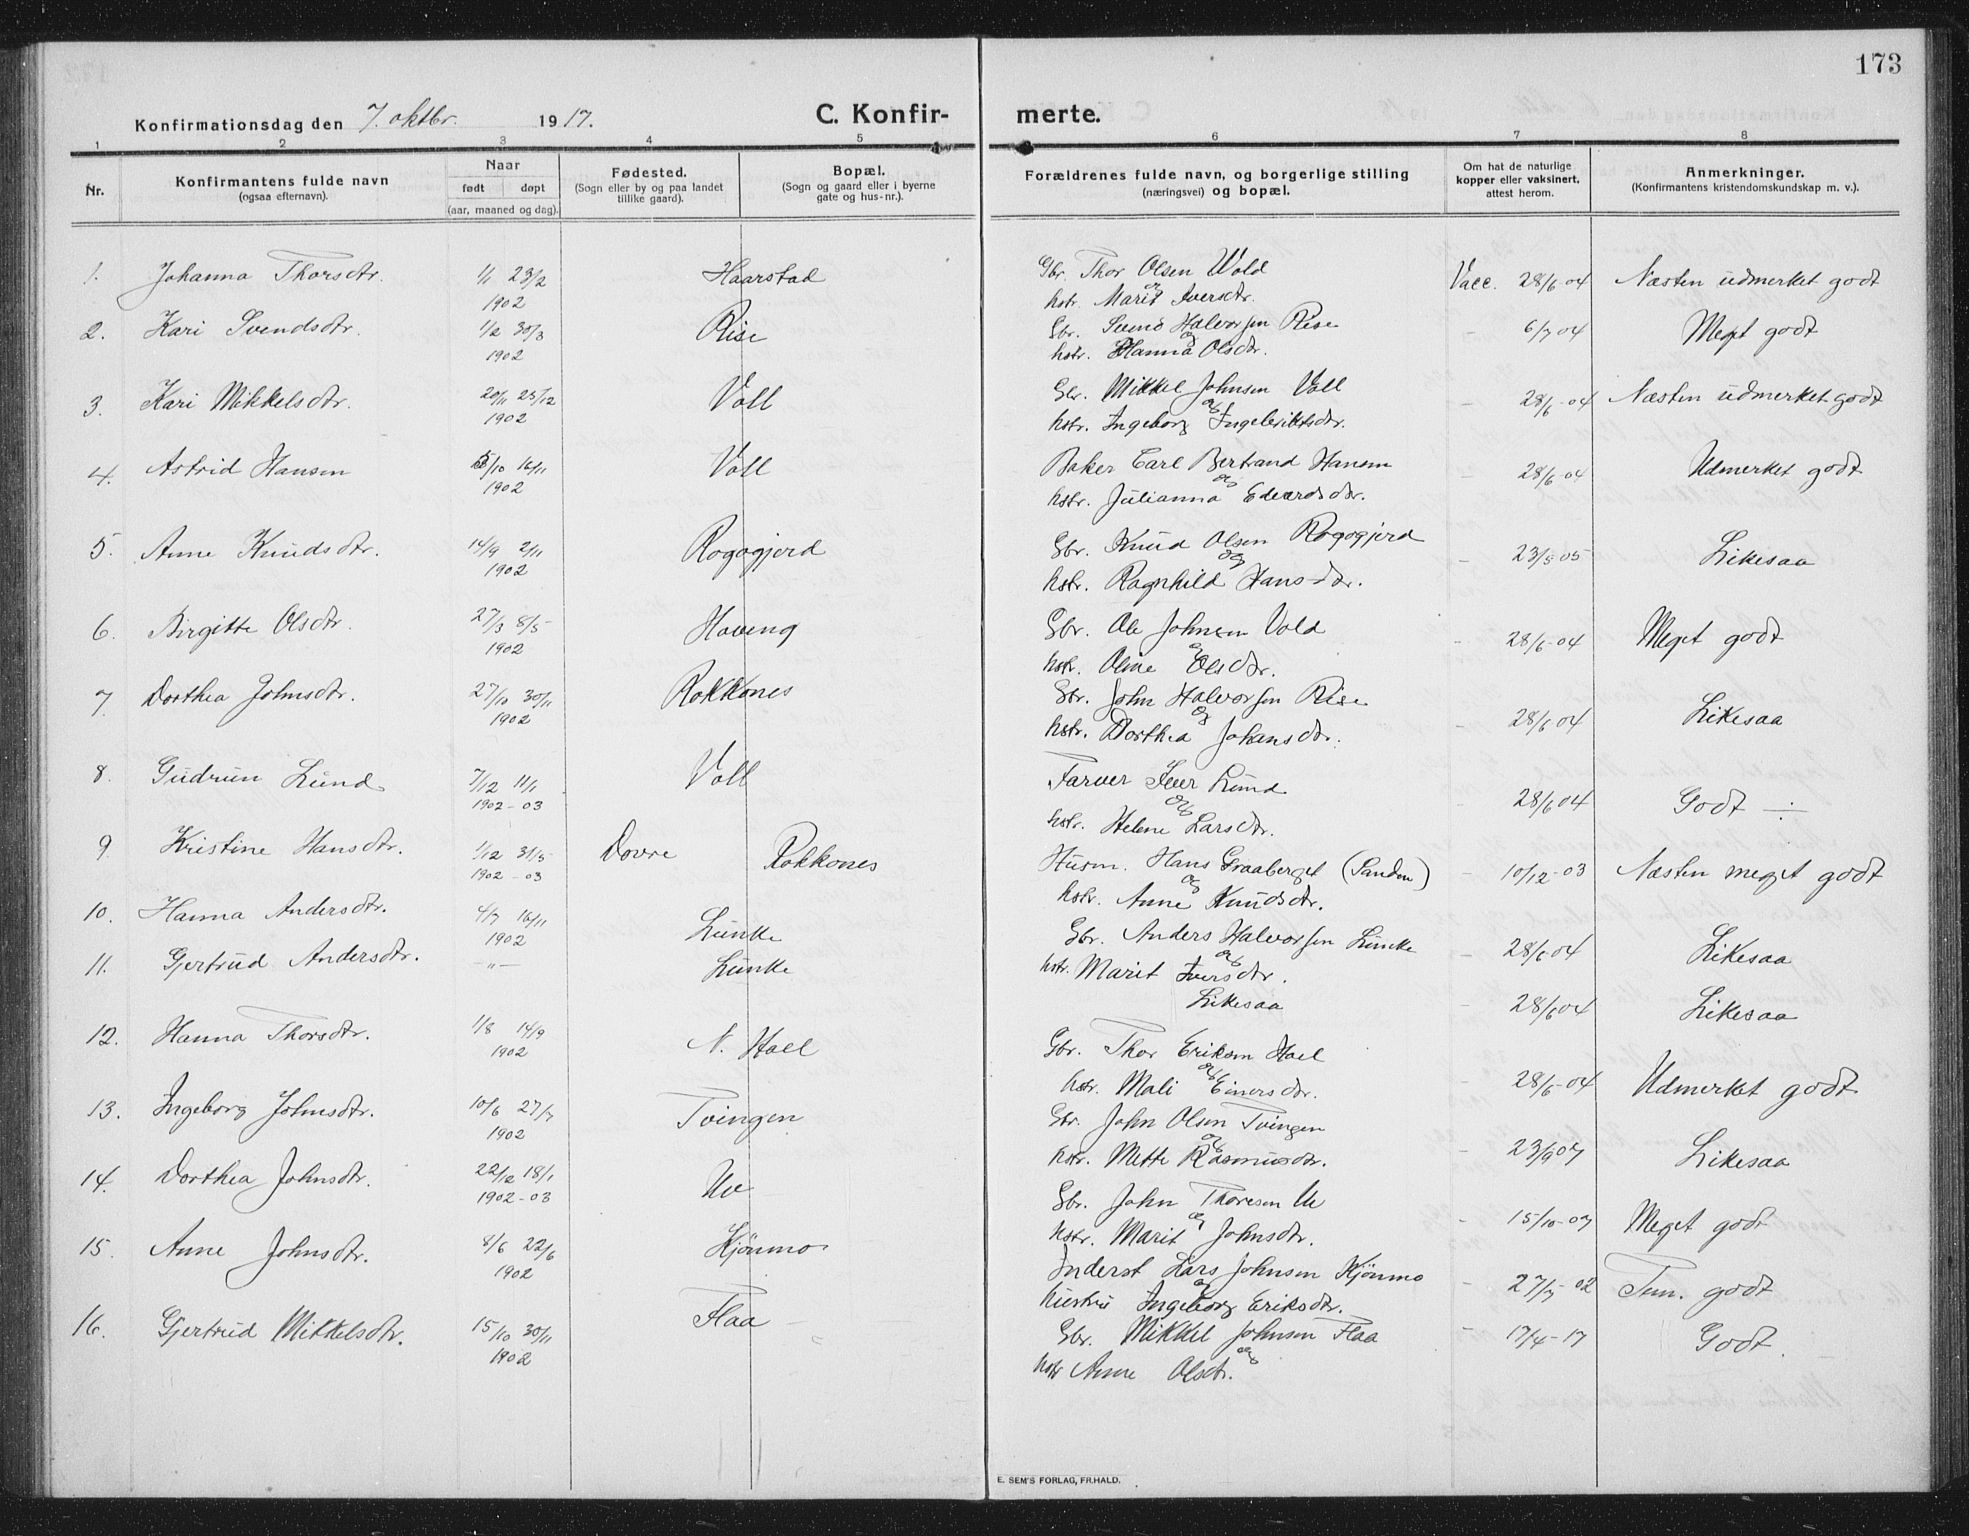 173
Konfirmationsdag den 7. oktbr. 1917.
C. Konfir-merte.
1 2 3 4 5 6 7 8
Nr.
Konfirmantens fulde navn
(ogsaa efternavn).
Naar
født døpt
(aar, maaned og dag).
Fødested.
(Sogn eller by og paa landet
tillike gaard).
Bopæl.
(Sogn og gaard eller i byerne
gate og hus-nr.).
Forældrenes fulde navn, og borgerlige stilling
(næringsvei) og bopæl.
Om hat de naturlige
kopper eller vaksinert,
attest herom.
Anmerkninger.
(Konfirmantens kristendomskundskap m. v.).
1. Johanna Thorsdtr. 1/1 23/2 Haarstad Gbr. Thor Olsen Wold Vacc. 28/6 04 Næsten udmerket godt
1902 og
hstr. Marit Iversdtr.
2. Kari Svendsdtr. 1/2 30/3 Rise Gbr. Svend Halvorsen Rise - 6/7 04 Meget godt
1902 og
hstr. Hanna Olsdtr.
3. Kari Mikkelsdtr. 20/11 25/12 Voll Gbr. Mikkel Johnsen Voll - 28/6-04 Næsten udmerket godt
1902 og
hstr. Ingeborg Ingebriktsdtr.
4. Astrid Hansen 5/10 16/11 Voll Baker Carl Bertrand Hansen - 28/6-04 Udmerket godt
1902 og
hstr. Julianna Edvardsdtr.
5. Anne Knudsdtr. 14/9 2/11 Rogogjerd Gbr. Knud Olsen Rogogjerd - 23/5 05 Likesaa
1902 og
hstr. Ragnhild Hansdtr.
6. Birgitte Olsdtr. 27/3 8/5 Haveng Gbr. Ole Johnsen Vold - 28/6-04 Meget godt
1902 og
hstr. Oline Olsdtr.
7. Dorthea Johnsdtr. 27/10 30/11 Rokkones Gbr. John Halvorsen Rise - 28/6 04 Likesaa
1902 og
hstr. Dorthea Johansdtr.
8. Gudrun Lund 7/12 11/1 Voll Farver Iver Lund - 28/6 04 Godt ÷
1902-03 og
hstr. Helene Larsdtr.
9. Kristine Hansdtr. 1/12 31/5 Dovre Rokkones Husm. Hans Graaberget (Sanden) - 10/12-03 Næsten meget godt
1902-03 og
hstr. Anne Knudsdtr.
10. Hanna Andersdtr. 4/7 16/11 Lunke Gbr. Anders Halvorsen Lunke - 28/6 04 Likesaa
1902 og
hstr. Marit Iversdtr.
11. Gjertrud Andersdtr. -"- Lunke Likesaa - 28/6 04 Likesaa
12. Hanna Thorsdtr. 1/8 14/9 N. Hoel Gbr. Thor Eriksen Hoel - 28/6-04 Udmerket godt
1902 og
hstr. Mali Einersdtr.
13. Ingeborg Johnsdtr. 10/6 27/7 Tvingen Gbr. John Olsen Tvingen - 23/9 07 Likesaa
1902 og
hstr. Mette Rasmusdtr.
14. Dorthea Johnsdtr. 22/12 18/1 Uv Gbr. John Thoresen Uv - 15/10-07 Meget godt
1902-03 og
hstr. Marit Johnsdtr.
15. Anne Johnsdtr. 8/6 22/6 Kjönmo Inderst Lars Johnsen Kjönmo - 27/7-02 Tem. godt
1902 og
hustru Ingeborg Eriksdtr.
16. Gjertrud Mikkelsdtr. 15/10 30/11 Flaa Gbr. Mikkel Johnsen Flaa - 17/4-17 Godt
1902 og
hstr Anne Olsdtr.
E. SEM'S FORLAG, FR.HALD.